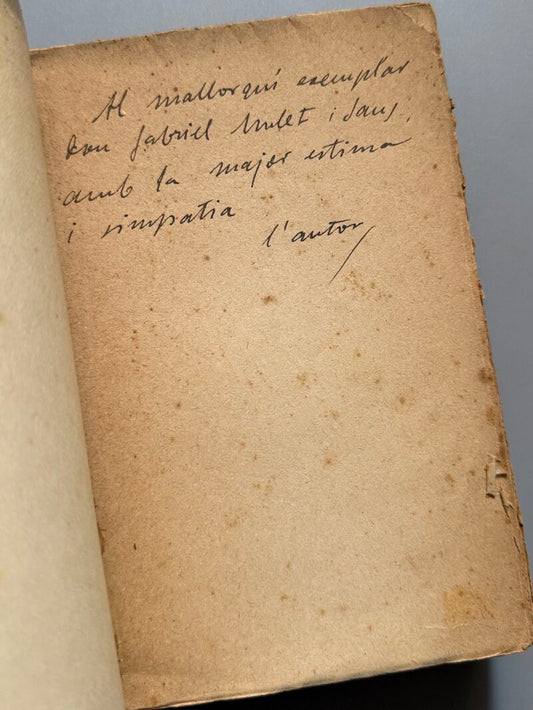 Al mallorquí exemplar
don Gabriel Mulet i Sans,
amb la major estima
i simpatia
l'autor